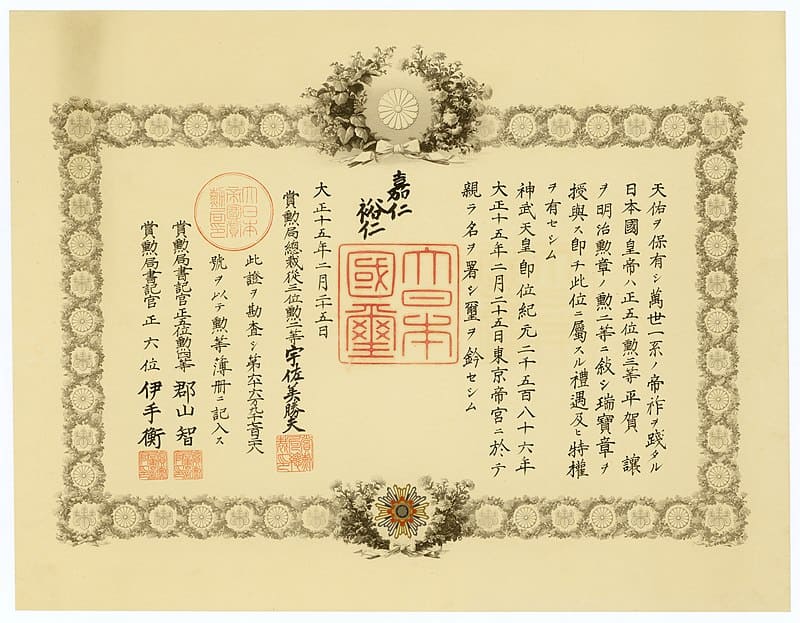 天佑ヲ保有シ萬世一系ノ帝祚ヲ踐タル
日本國皇帝ハ正五位勲三等平賀 讓
ヲ明治勲章ノ勲二等ニ敍シ瑞寶章ヲ
授與ス即チ此位ニ屬スル禮遇及ヒ特權
ヲ有セシム
神武天皇即位紀元二千五百八十六年
大正十五年二月二十五日東京帝宮ニ於テ
親ラ名ヲ署シ璽ヲ鈐セシム
嘉仁
裕仁
大日本
國璽
大正十五年二月二十五日
賞勲局總裁從三位勲二等宇佐美勝夫
此證ヲ勘査シ第
號ヲ以テ勲等簿册ニ記入ス
大日本
帝國賞
勲局印
賞勲局書記官正五位勲四等 郡山 智
賞勲局書記官正六位 伊手 衡